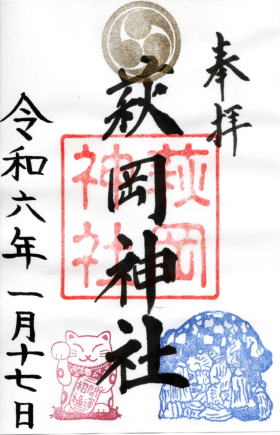 奉拝
萩岡神社
萩岡
神社
令和六年一月十七日